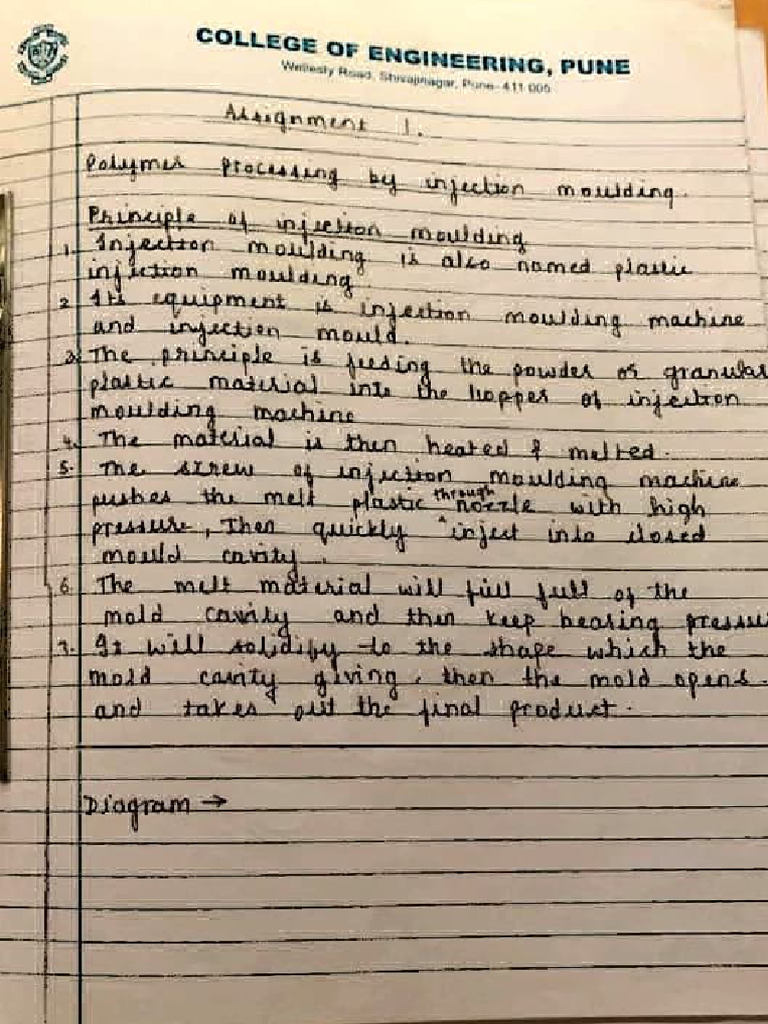 COLLEGE OF ENGINEERING, PUNE
Wellesly Road, Shivajinagar, Pune- 411 005
Assignment 1.
Polymer processing by injection moulding.
Principle of injection moulding
1. Injection moulding is also named plastic
injection moulding.
2. Its equipment is injection moulding machine
and injection mould.
3. The principle is feeding the powder or granular
plastic material into the hopper of injection
moulding machine
4. The material is then heated & melted.
5. The screw of injection moulding machine
pushes the melt plastic through nozzle with high
pressure, then quickly inject into closed
mould cavity.
6. The melt material will fill full of the
mold cavity and then keep bearing pressure
7. It will solidify to the shape which the
mold cavity giving, then the mold opens
and takes out the final product.
Diagram →